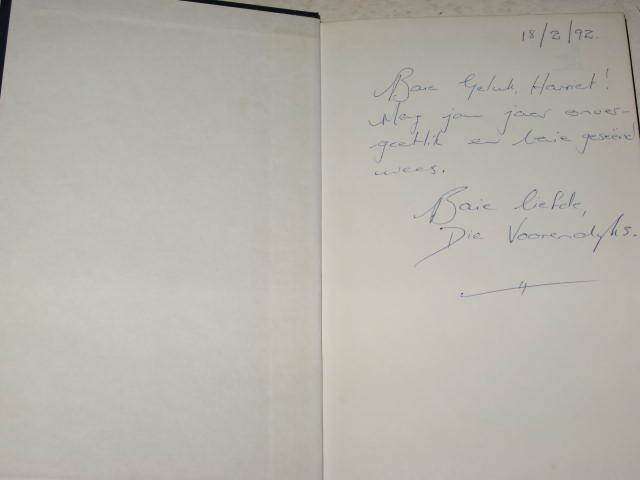 18/2/92.
Baie Geluk, Harriet!
Mag jou jaar onver-
geetlik en baie geseënd
wees.
Baie liefde,
Die Voorendyks.